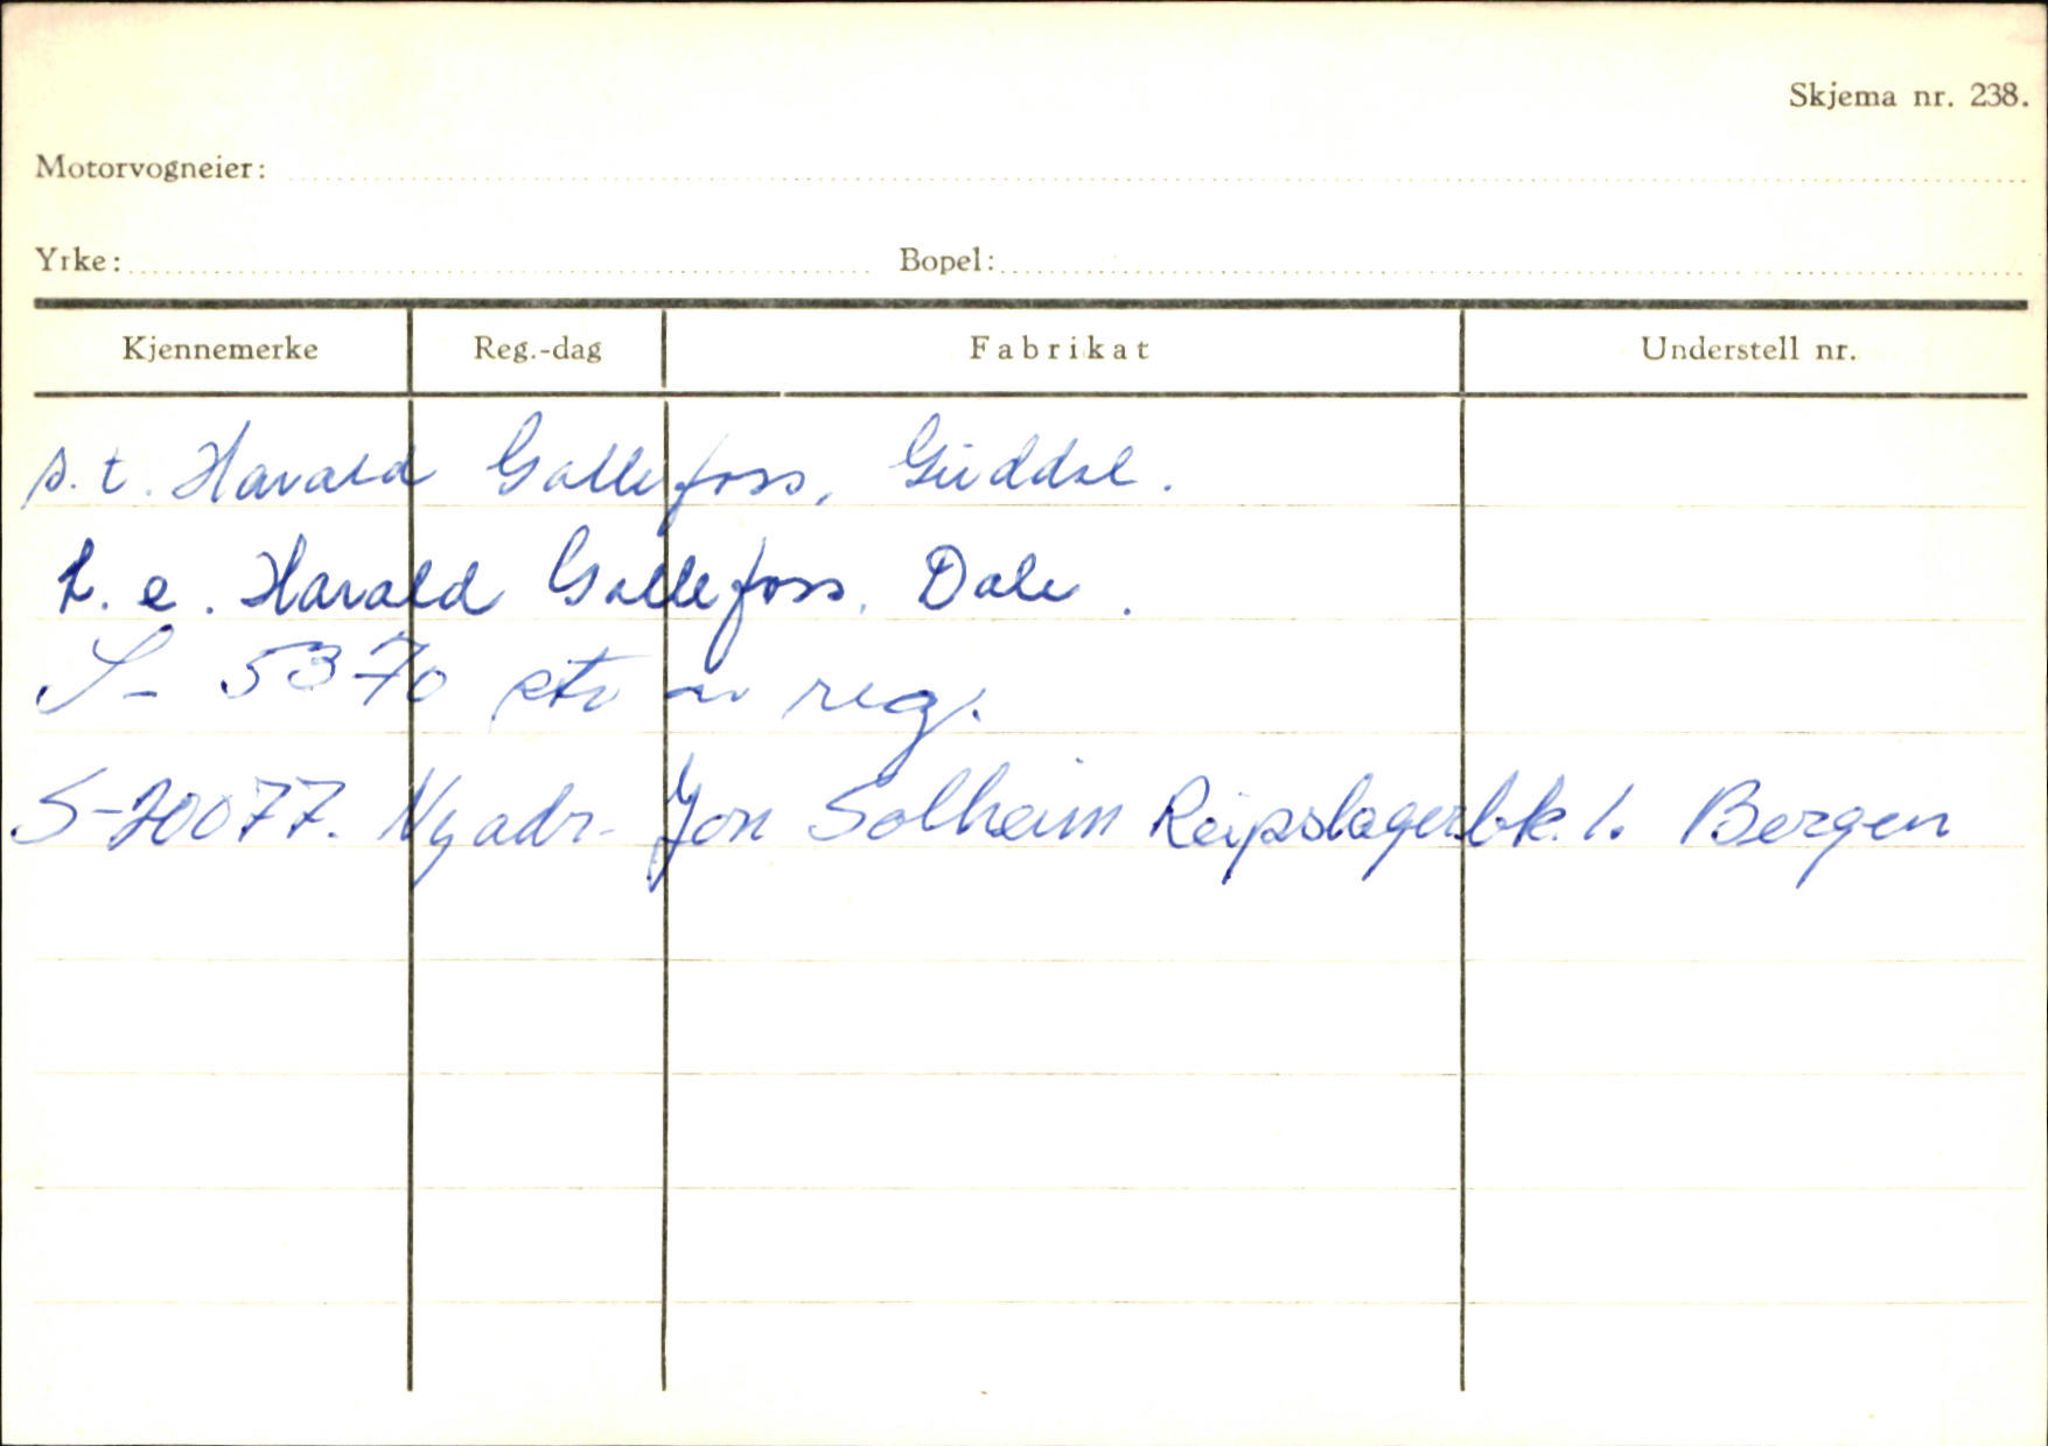 Skjema nr. 238.
Motorvogneier:
Yrke: Bopel:
Kjennemerke Reg.-dag Fabrikat Understell nr.
s.t. Harald Gallefoss, Guddal.
h.e. Harald Gallefoss, Dale.
S- 5370 str av reg.
S-20077. Ny adr. Jon Solheim Reipslagerbk. 1. Bergen